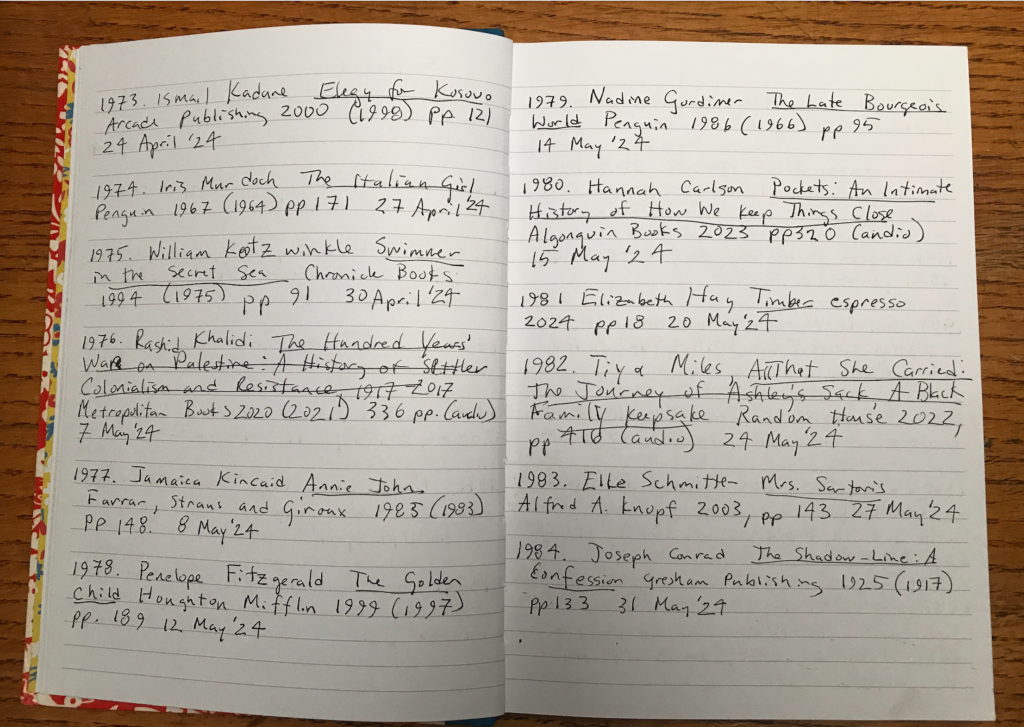 1973. Ismail Kadare Elegy for Kosovo
Arcade Publishing 2000 (1998) pp 121
24 April '24
1974. Iris Murdoch The Italian Girl
Penguin 1967 (1964) pp 171 27 April '24
1975. William Kotzwinkle Swimmer
in the Secret Sea Chronicle Books
1994 (1975) pp 91 30 April '24
1976. Rashid Khalidi The Hundred Years'
War on Palestine: A History of Settler
Colonialism and Resistance, 1917-2017
Metropolitan Books 2020 (2021) 336 pp. (audio)
7 May '24
1977. Jamaica Kincaid Annie John
Farrar, Straus and Giroux 1985 (1983)
pp 148. 8 May '24
1978. Penelope Fitzgerald The Golden
Child Houghton Mifflin 1999 (1997)
pp. 189 12 May '24
1979. Nadine Gordimer The Late Bourgeois
World Penguin 1986 (1966) pp 95
14 May '24
1980. Hannah Carlson Pockets: An Intimate
History of How We Keep Things Close
Algonquin Books 2023 pp 320 (audio)
15 May '24
1981 Elizabeth Hay Timber espresso
2024 pp 18 20 May '24
1982. Tiya Miles, All That She Carried:
The Journey of Ashley's Sack A Black
Family Keepsake Random House 2022,
pp 416 (audio) 24 May '24
1983. Elke Schmitter Mrs. Sartoris
Alfred A. Knopf 2003, pp 143 27 May '24
1984. Joseph Conrad The Shadow-Line: A
Confession Gresham Publishing 1925 (1917)
pp 133 31 May '24